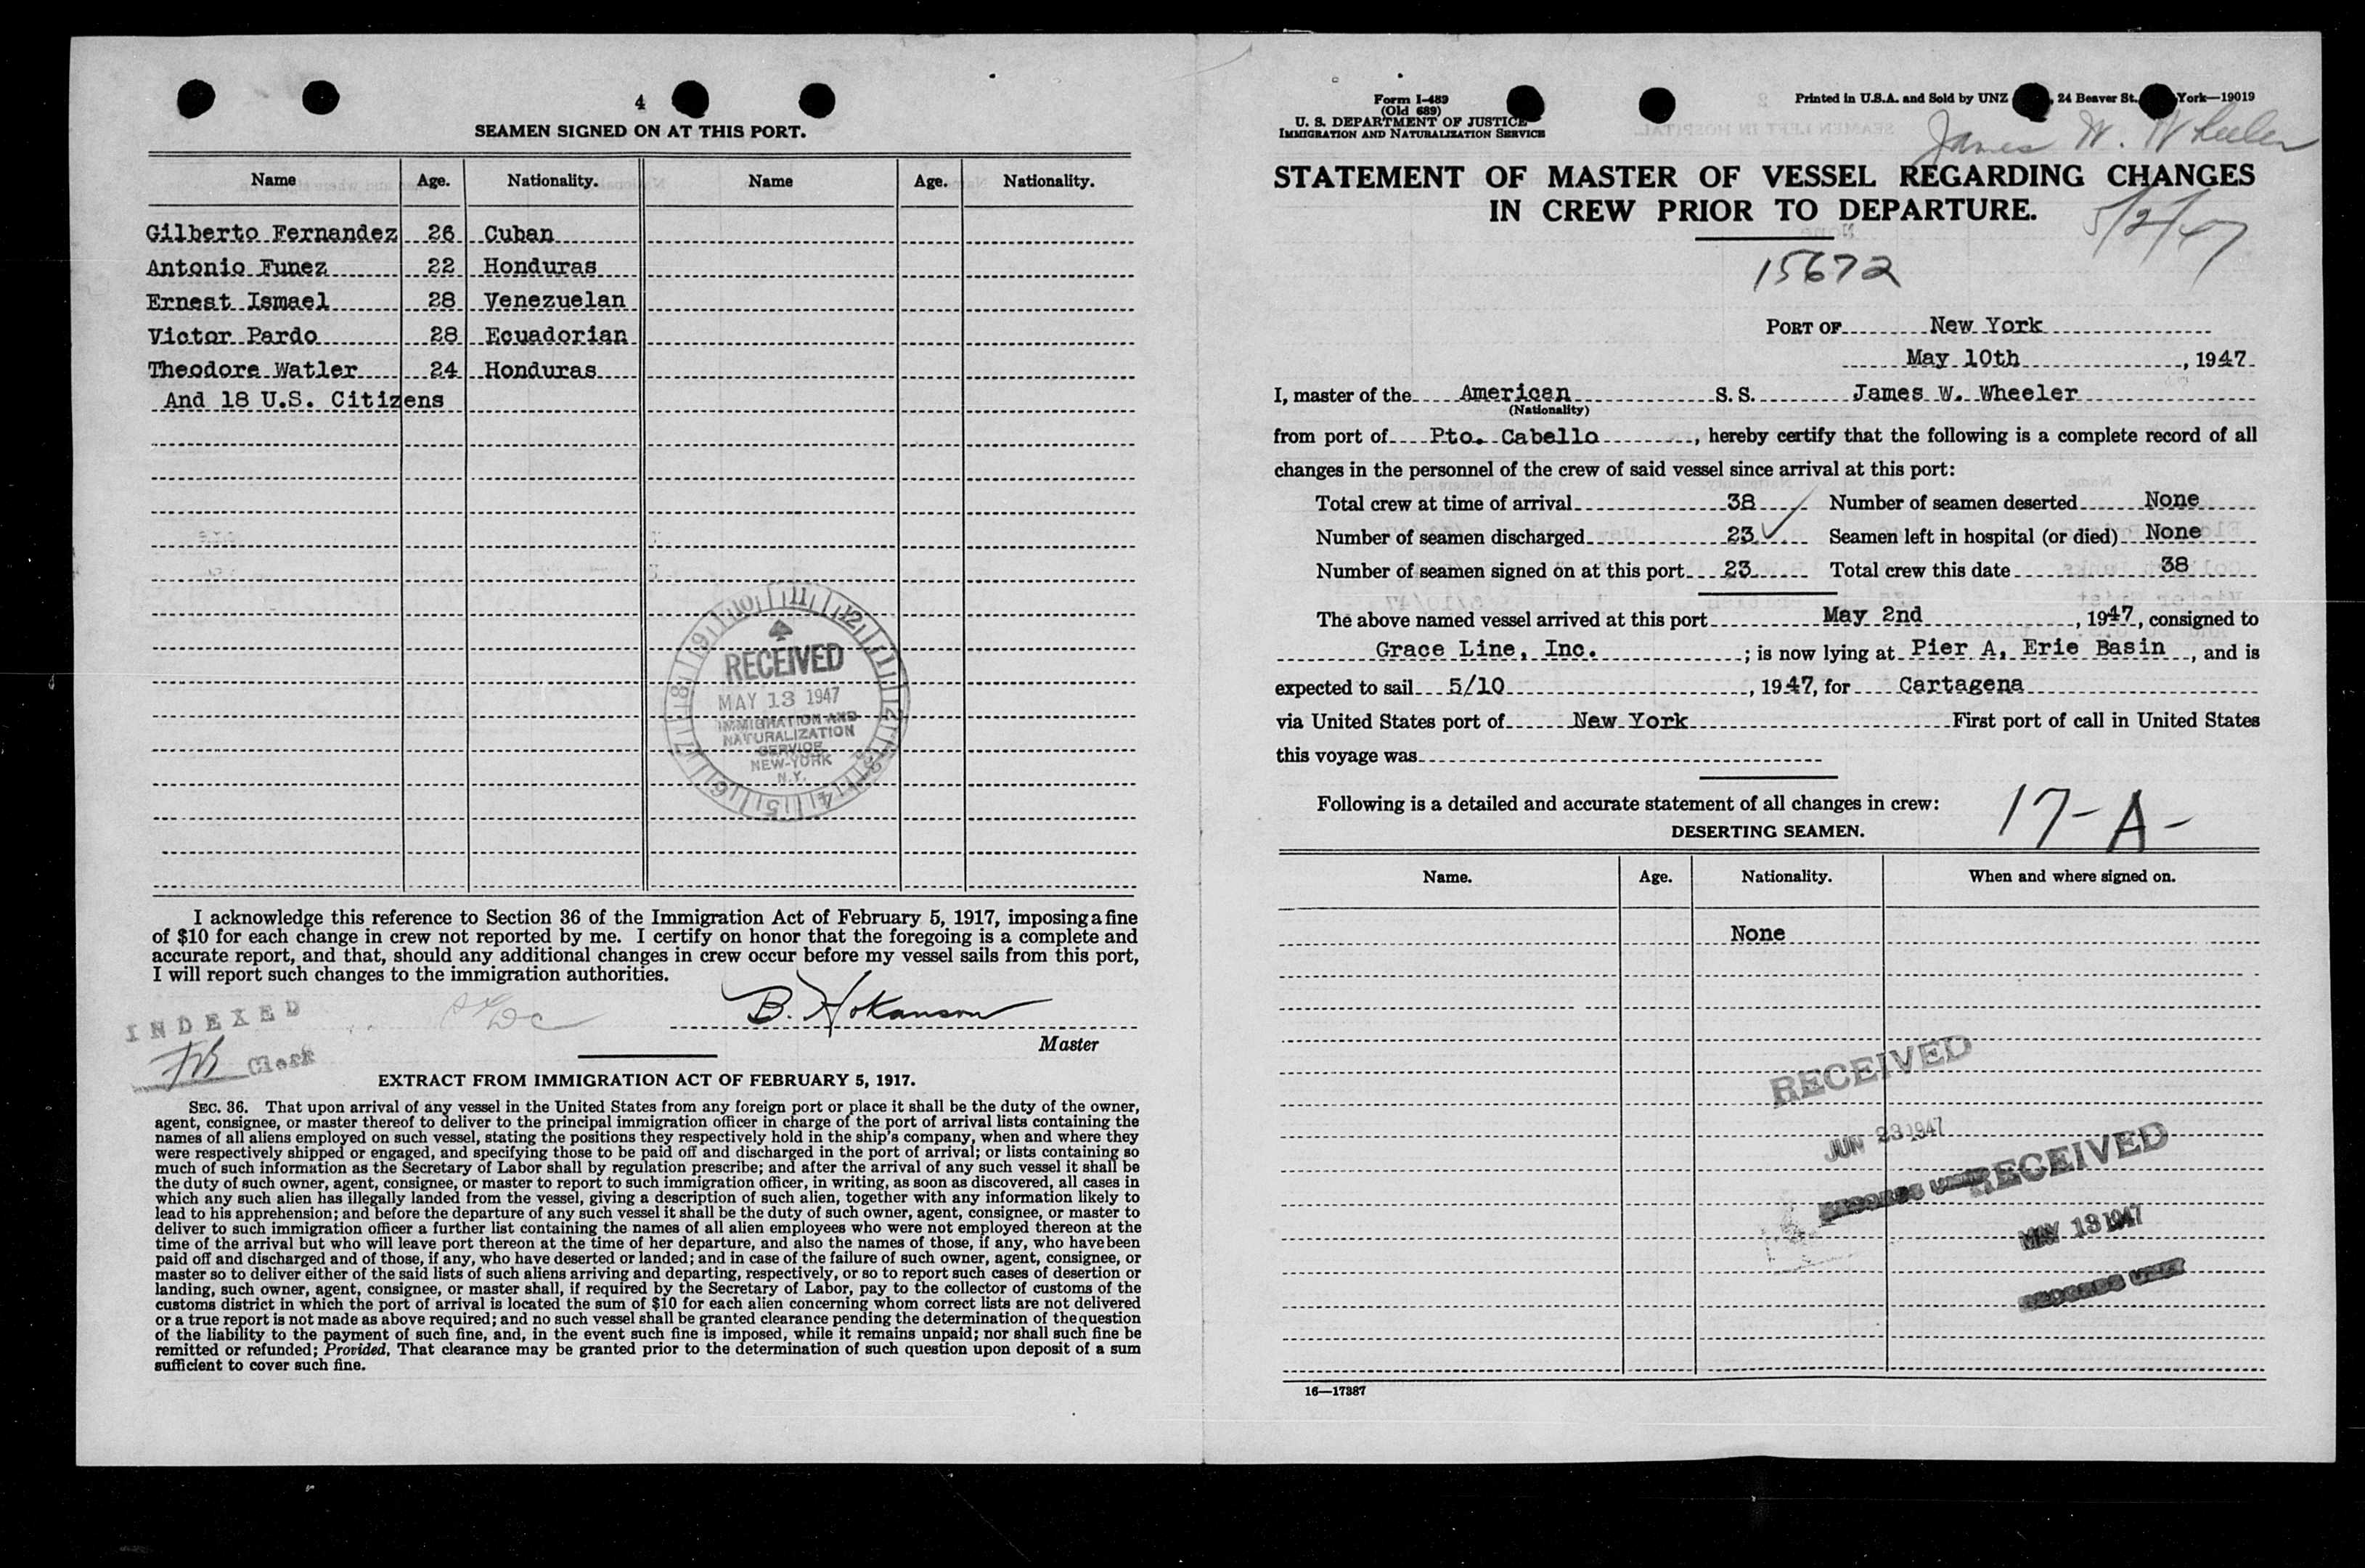 4
SEAMEN SIGNED ON AT THIS PORT.
Name Age. Nationality. Name Age. Nationality.
Gilberto Fernandez 26 Cuban
Antonio Funez 22 Honduras
Ernest Ismael 28 Venezuelan
Victor Pardo 28 Ecuadorian
Theodore Watler 24 Honduras
And 18 U.S. Citizens
10 11 12 1 2 3 4 5 6 7 8 9
RECEIVED
MAY 13 1947
IMMIGRATION AND
NATURALIZATION
SERVICE
NEW-YORK
N.Y.
I acknowledge this reference to Section 36 of the Immigration Act of February 5, 1917, imposing a fine
of $10 for each change in crew not reported by me. I certify on honor that the foregoing is a complete and
accurate report, and that, should any additional changes in crew occur before my vessel sails from this port,
I will report such changes to the immigration authorities.
INDEXED
Clerk
B. Hokanson
Master
EXTRACT FROM IMMIGRATION ACT OF FEBRUARY 5, 1917.
SEC. 36. That upon arrival of any vessel in the United States from any foreign port or place it shall be the duty of the owner,
agent, consignee, or master thereof to deliver to the principal immigration officer in charge of the port of arrival lists containing the
names of all aliens employed on such vessel, stating the positions they respectively hold in the ship's company, when and where they
were respectively shipped or engaged, and specifying those to be paid off and discharged in the port of arrival; or lists containing so
much of such information as the Secretary of Labor shall by regulation prescribe; and after the arrival of any such vessel it shall be
the duty of such owner, agent, consignee, or master to report to such immigration officer, in writing, as soon as discovered, all cases in
which any such alien has illegally landed from the vessel, giving a description of such alien, together with any information likely to
lead to his apprehension; and before the departure of any such vessel it shall be the duty of such owner, agent, consignee, or master to
deliver to such immigration officer a further list containing the names of all alien employees who were not employed thereon at the
time of the arrival but who will leave port thereon at the time of her departure, and also the names of those, if any, who have been
paid off and discharged and of those, if any, who have deserted or landed; and in case of the failure of such owner, agent, consignee, or
master so to deliver either of the said lists of such aliens arriving and departing, respectively, or so to report such cases of desertion or
landing, such owner, agent, consignee, or master shall, if required by the Secretary of Labor, pay to the collector of customs of the
customs district in which the port of arrival is located the sum of $10 for each alien concerning whom correct lists are not delivered
or a true report is not made as above required; and no such vessel shall be granted clearance pending the determination of the question
of the liability to the payment of such fine, and, in the event such fine is imposed, while it remains unpaid; nor shall such fine be
remitted or refunded; Provided, That clearance may be granted prior to the determination of such question upon deposit of a sum
sufficient to cover such fine.
Form I-489
(Old 689)
U. S. DEPARTMENT OF JUSTICE
IMMIGRATION AND NATURALIZATION SERVICE
Printed in U.S.A. and Sold by UNZ , 24 Beaver St. York—19019
James W. Wheeler
STATEMENT OF MASTER OF VESSEL REGARDING CHANGES
IN CREW PRIOR TO DEPARTURE.
5/2/47
15672
PORT OF New York
May 10th, 1947
I, master of the American S. S. James W. Wheeler
(Nationality)
from port of Pto. Cabello, hereby certify that the following is a complete record of all
changes in the personnel of the crew of said vessel since arrival at this port:
Total crew at time of arrival 38 Number of seamen deserted None
Number of seamen discharged 23 Seamen left in hospital (or died) None
Number of seamen signed on at this port 23 Total crew this date 38
The above named vessel arrived at this port May 2nd, 1947, consigned to
Grace Line, Inc. ; is now lying at Pier A, Erie Basin, and is
expected to sail 5/10, 1947, for Cartagena
via United States port of New York First port of call in United States
this voyage was
Following is a detailed and accurate statement of all changes in crew:
17-A-
DESERTING SEAMEN.
Name. Age. Nationality. When and where signed on.
None
RECEIVED
JUN 23 1947
RECORDS UNIT
RECEIVED
MAY 13 1947
RECORDS UNIT
16—17387